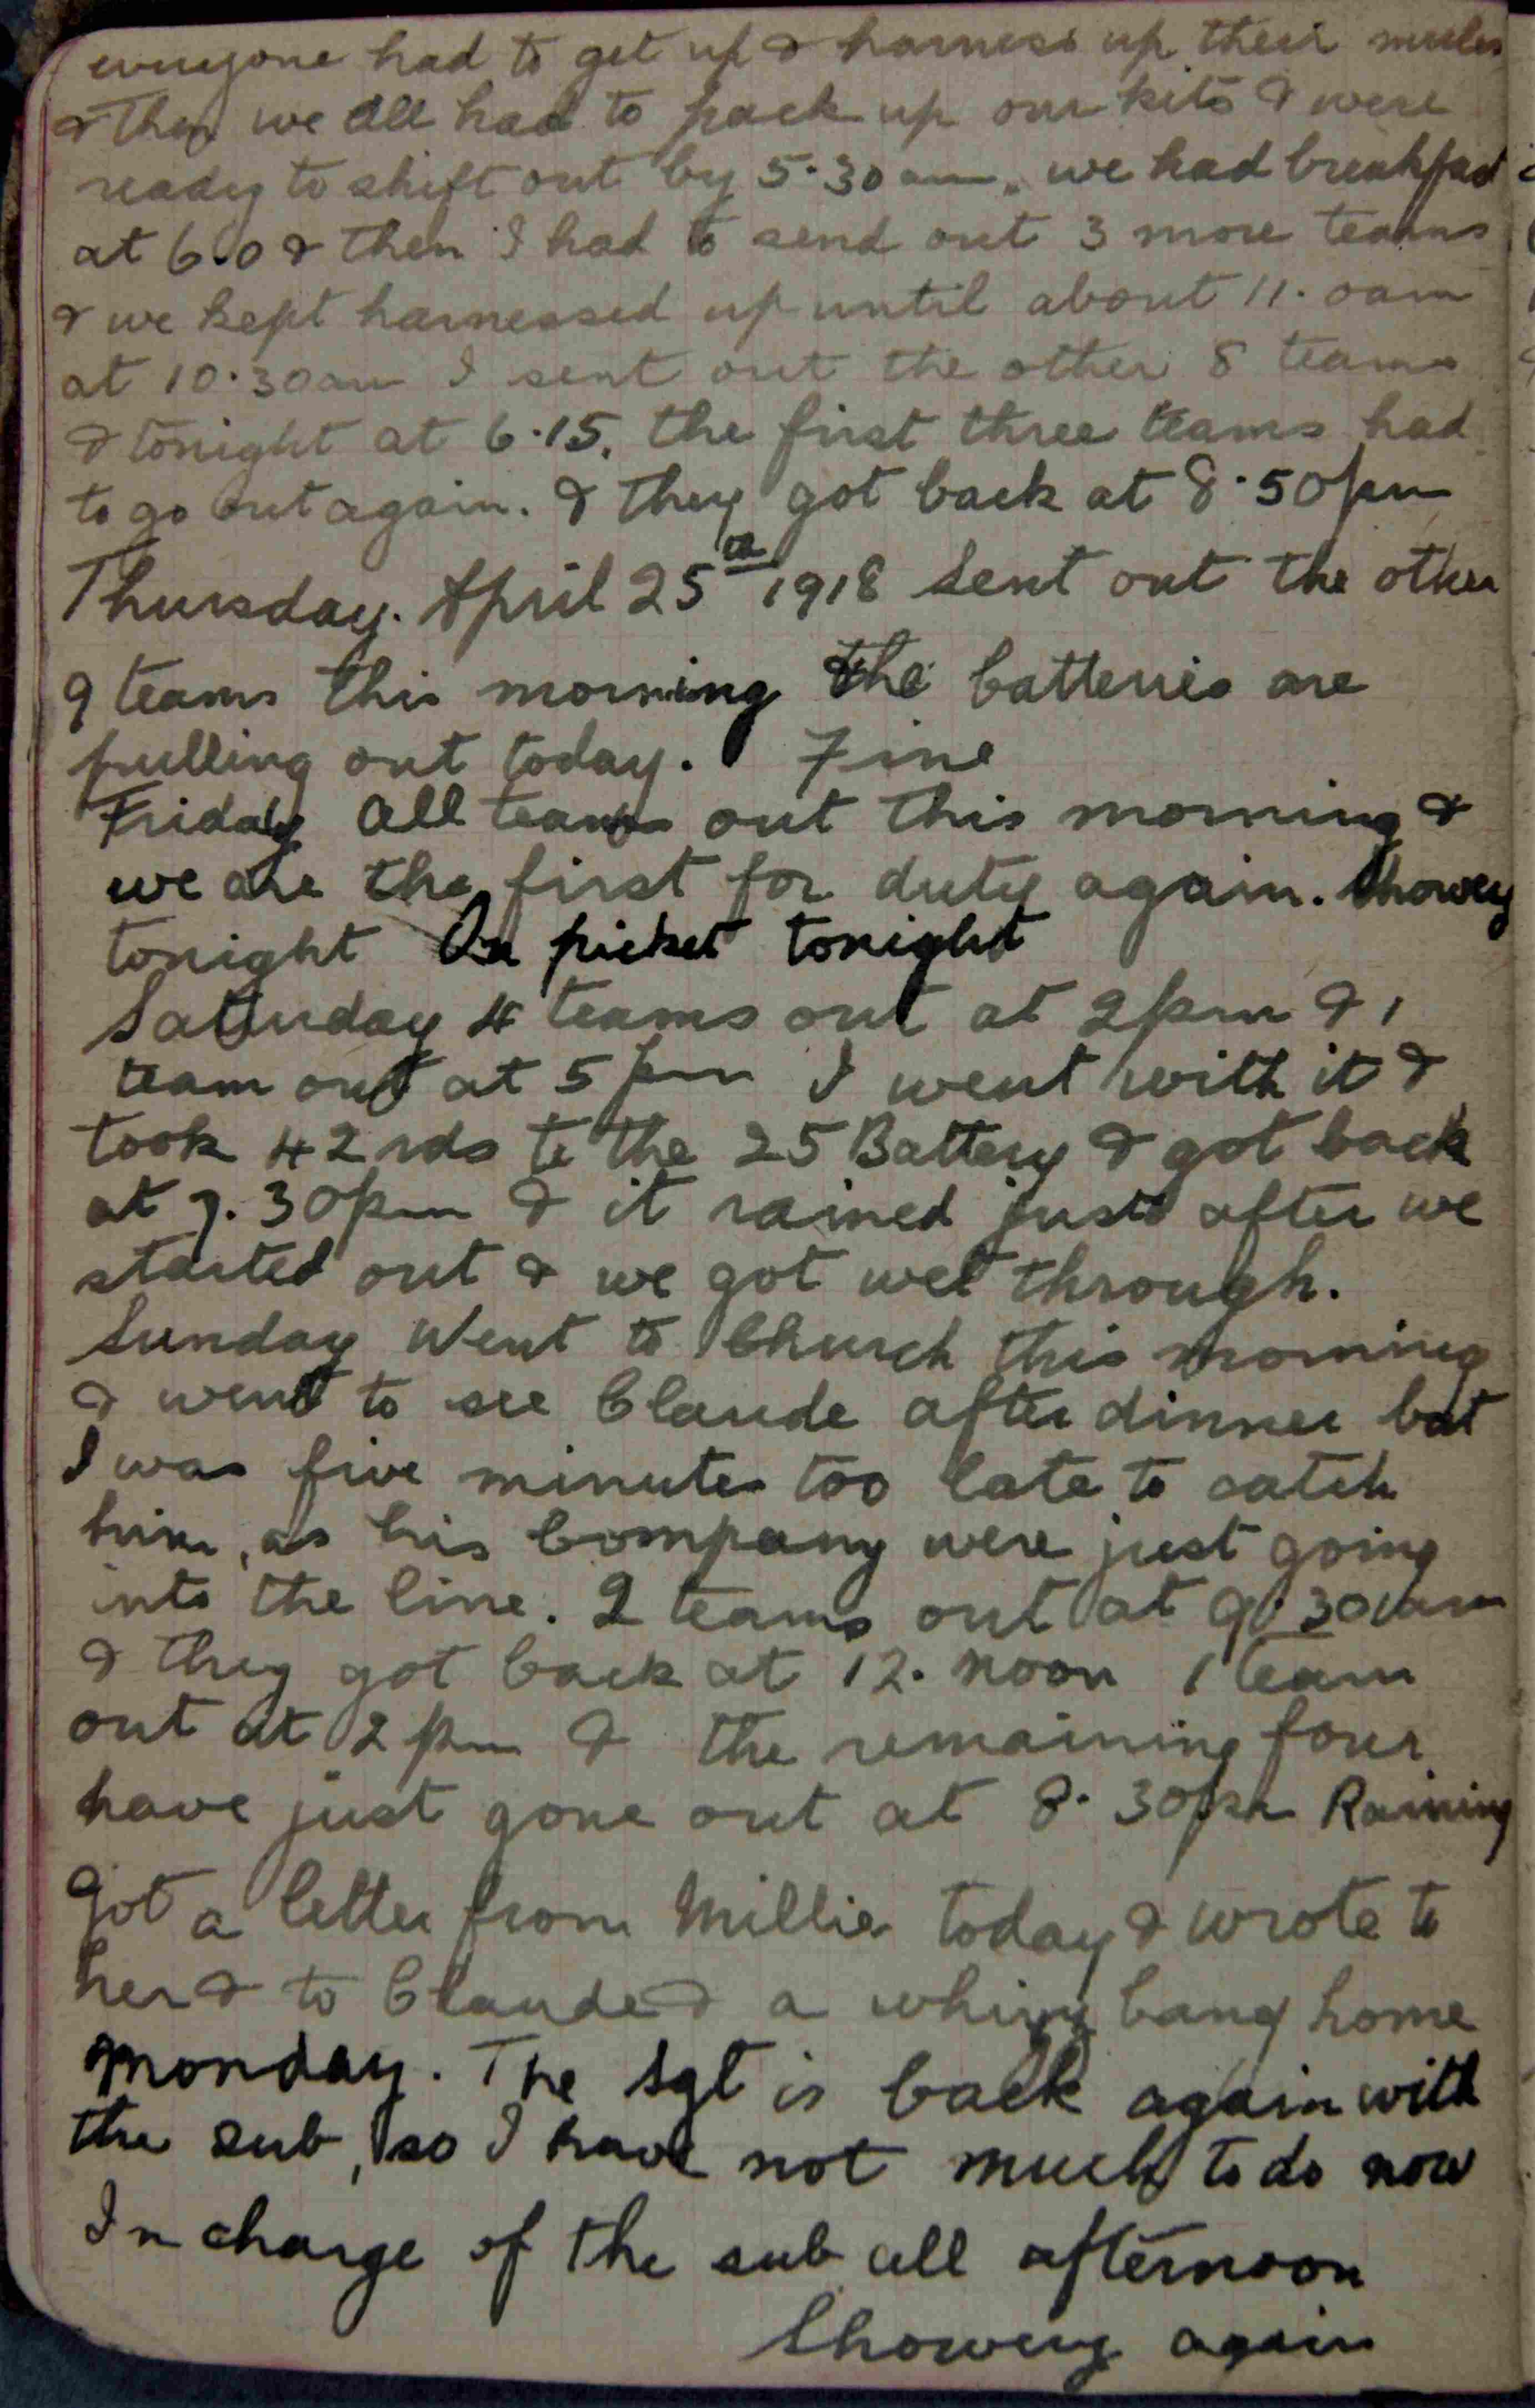 everyone had to get up & harness up their mules
& then we all had to pack up our kits & were
ready to shift out by 5.30am. we had breakfast
at 6.0 & then I had to send out 3 more teams
& we kept harnessed up until about 11.0am
at 10.30am I sent out the other 8 teams
& tonight at 6.15. the first three teams had
to go out again. & they got back at 8.50pm
Thursday. April 25th 1918 Sent out the other
9 teams this morning the batteries are
pulling out today. Fine
Friday All teams out this morning &
we are the first for duty again. Showery
tonight On picket tonight
Saturday 4 teams out at 2pm & 1
team out at 5pm I went with it &
took 42 rds to the 25 Battery & got back
at 7.30pm & it rained just after we
started out & we got wet through.
Sunday Went to Church this morning
& went to see Claude after dinner but
I was five minutes too late to catch
him, as his Company were just going
into the line. 2 teams out at 9.30am
& they got back at 12. noon 1 team
out at 2pm & the remaining four
have just gone out at 8.30pm Raining
Got a letter from Millie today & wrote to
her & to Claude & a whizz bang home
Monday. The Sgt is back again with
the sub, so I have not much to do now
In charge of the sub all afternoon
Showery again